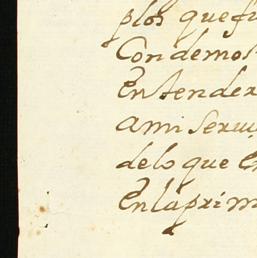 plos que fu
Con demos
entender
a mi seruy
delo que e
en la prim